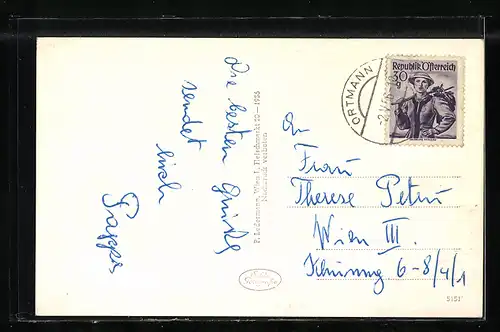 Die besten Grüße
sendet
Euch
Pappa
P. Ledermann, Wien I., Fleischmarkt 20 — 1956
Nachdruck verboten
ORTMANN
Republik Österreich
30
g
Frau
Therese Petru
Wien III.
6-8/4/1
5151